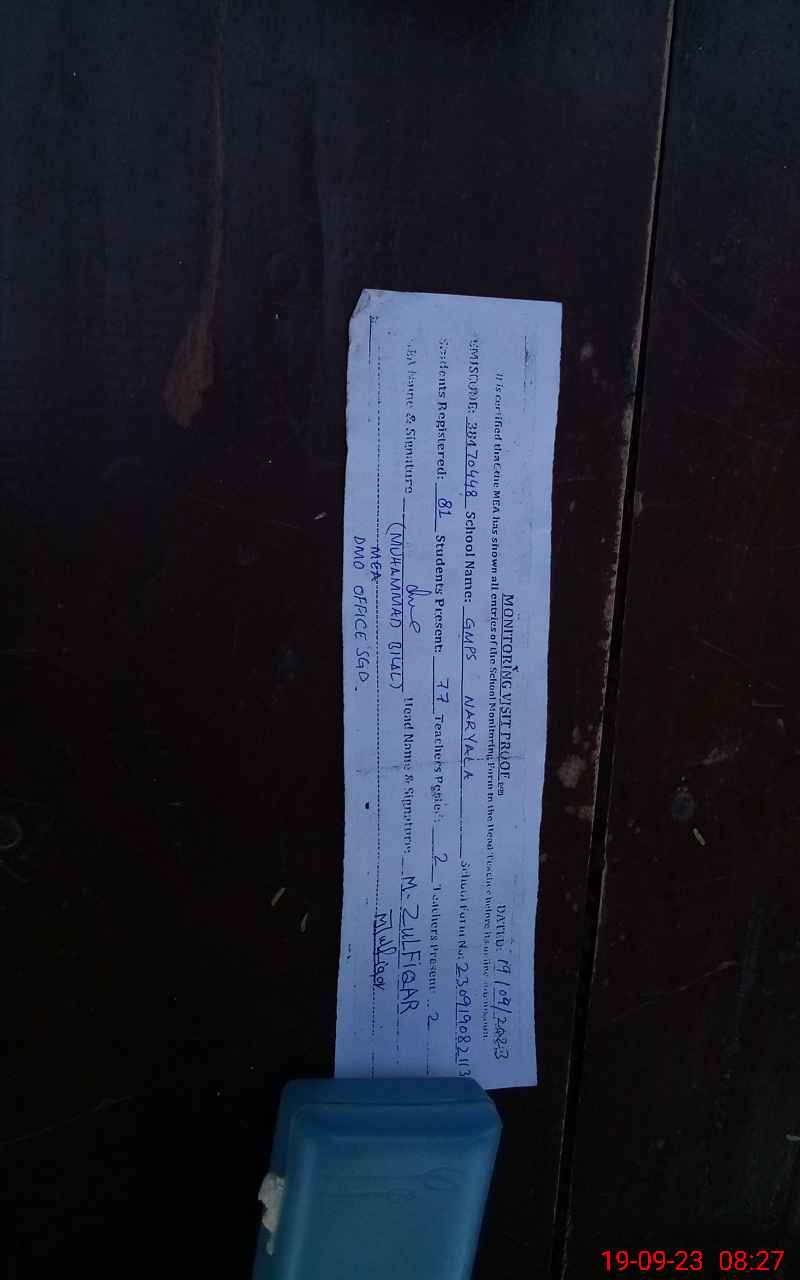 MONITORING VISIT PROOF
DATED: 19/09/2023
It is certified that the MEA has shown all entries of the School Monitoring Form to the Head Teacher before its online submission.
EMISCODE: 38470448 School Name: GMPS NARYALA School Form No: 230919082113
Students Registered: 81 Students Present: 77 Teachers Posted: 2 Teachers Present: 2
MEA Name & Signature (MUHAMMAD BILAL) Head Name & Signature: M. ZULFIQAR
MEA M Zulfiqar
DMO OFFICE SGD.
19-09-23 08:27